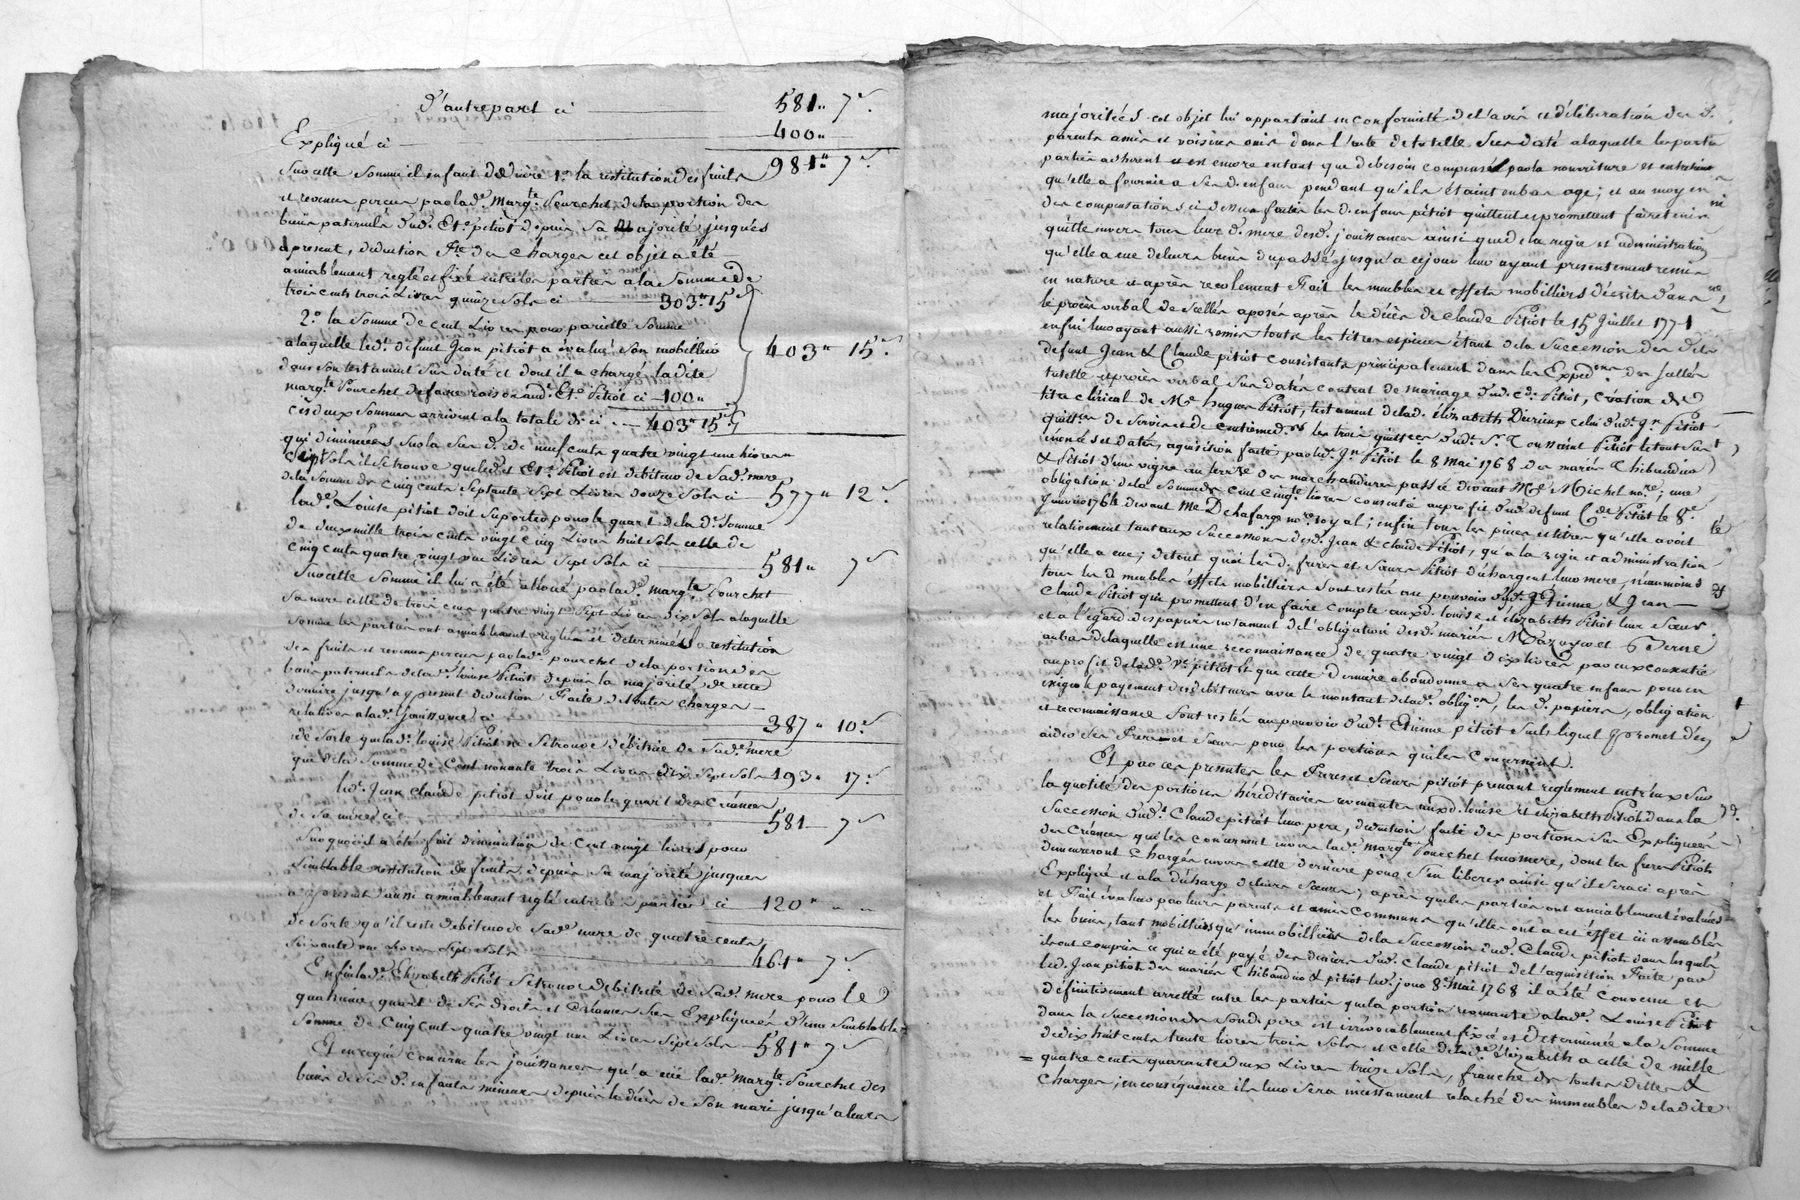 d'autrepart ci 581" 7s.
Expliqué ci 400"
981" 7s.
Sur celle somme il en faut déduire 1o. la restitution des fruits
et revenus percus par lade. Margte. Pourchet de la portion des
biens paternels dudt. Ete. pitiot depuis sa majorité jusqués
àpresent, déduction fte. des charges cet objet a été
amiablement reglé et fixé entre les parties a la somme de
trois cents trois Livres quinze sols ci 303" 15s
2o. la somme de cent Livres pour pareille somme
a laquelle ledt. défunt Jean pitiot a évalué son mobilier
dans son testament sus daté et dont il a chargé la dite
margte. Pourchet de faire raison audt. Ete. Pitiot ci 100"
403" 15s.
ces deux sommes arrivent a la totale de ci 403" 15s
qui diminuées sur la sus de. de neuf cents quatre vingt une livres
sept sols il se trouve que ledit Ete. Pitiot est débiteur de sade. mere
de la somme de cinq cents septante sept Livres douze sols ci 577" 12s.
lade. Louise pitiot doit suporter pour le quart de la de. somme
de deux mille trois cents vingt cinq Livres huit sols celle de
cinq cents quatre vingt une Livres sept sols ci 581" 7s
Sur celle somme il lui a été aloué par lade. margte. Pourchet
sa mere celle de trois cens quatre vingt sept Livres dix sols a laquelle
somme les parties ont amiablement réglées et déterminé la restitution
des fruits et revenus percus par lade. pourchet de la portion des
biens paternels de lade. louise Pitiot depuis la majorité de cette
derniere jusqu'a present déduction faite de toutes charges
relatives a lade. jouissance ci 387" 10s.
de sorte que lade. louise Pitiot ne se trouve débitrice de sade. mere
que de la somme de Cent nonante trois Livres dix sept sols 193" 17s
ledt. Jean claude pitiot doit pour le quart des créances
de sa mere ci 581 7s
Sur quoi il a été fait diminution de cent vingt livres pour
semblable restitution de fruits depuis sa majorité jusques
a present aussi amiablement reglé entre les parties ci 120" " "
de sorte qu'il reste débiteur de sade. mere de quatre cents
soixante une livres sept sols 461" 7s.
Enfin lade. Elizabeth Pitiot se trouve débitrice de sade. mere pour le
quatrieme quart de ses droits et créances sus Expliquées d'une semblable
somme de cinq cent quatre vingt une Livres sept sols 581" 7s
Et en ce qui concerne les jouissances qu'a eüe lade. margte. Pourchet des
biens de ses d. enfants mineurs depuis le décès de son mari jusqu'a leurs
majoritées cet objet lui appartient en conformité de l'avis et déliberation des d.
parents amis et voisins mis dans l'acte de tutelle sus daté a laquelle les parties
parties adherent et est encore entant que de besoin compensé par la nourriture et entretien
qu'elle a fournie a ses d. enfans pendant qu'ils étaint en bas age; et au moyen
des compensations ci dessus faites les d. enfans pitiot quittent et promettent faire tenir
quitte envers tous leur d. mere desd. jouissances ainsi que de la regie et administration
qu'elle a eue de leurs biens du passé jusqu'a ce jour leur ayant presentement remis
en nature et après recolement fait les meubles et effets mobilliers décrits dans
le procès verbal de scellés aposés après le décès de claude Pitiot le 15 juillet 1771
enfin leur ayant aussi remis touts les titres et pieces étant de la succession des dits
defunt Jean & Claude pitiot consistants principalement dans les Expedons. des scellés
tutelle et procès verbal sus datés contrat de mariage dudt. cde. Pitiot, création de
titre clérical de Me. hugues Pitiot, testament de lade. élizabeth Durieux celui dudt. Jn. Pitiot
quittces. de servis et de centieme dr. les trois quittces dudt. Sr. Toussaint Pitiot le tout sus
énoncés et datés, aquisition faite par ledt. Jn. Pitiot le 8 mai 1768 des mariés Thibaudier
& Pitiot d'une vigne au terroir des marchandures passée devant Me Michel nore.; une
obligation de la somme de cent cinqte. livres consenti au profit dudt. défunt Cde. Pitiot le 8e.
janvier 1764 devant Me Delafarge nore. royal; enfin tous les pieces et titres qu'elle avoit
relativement tant aux successions desd. Jean & claude Pitiot, qu'a la regie et administration
qu'elle a eue; de tout quoi les d. freres et soeurs Pitiot déchargent leur mere, néanmoins
tous les d. meubles effets mobilliers sont restés au pouvoir dudt. Etienne & Jean
Claude Pitiot qui promettent d'en faire compte auxd. louise et élizabeth Pitiot leur soeurs
et a l'égard des papiers notament de l'obligation desd. mariés Mazoyer et
au bas de laquelle est une reconnaissance de quatre vingt dix livres par eux consentie
au profit de lade. Ve. pitiot et que cette derniere abandonne a ses quatre enfans pour en
exiger le payement des débiteurs avec le montant de lade. obligon. les d. papiers, obligation
et reconnaissance sont restés au pouvoir dudt. Etienne pitiot seul lequel promet d'en
aider ses freres et soeurs pour les portions qu'ils concernent.
Et par ces presentes les freres et soeurs pitiot prenant reglement entr'eux sur
la quotité des portions héréditaires revenantes auxd. louise et élizabeth Pitiot dans la
succession dudt. Claude pitiot leur pere, déduction faite des portions sus Expliquées
des créances qui les concernent envers lade. margte. Pourchet leur mere, dont les freres Pitiot
demeureront chargés envers cette derniere pour s'en liberer ainsi qu'il sera ci après
Expliqué et a la décharge de leurs soeurs; après que les parties ont amiablement évalués
et fait évaluer par leurs parents et amis communs qu'elles ont a cet éffet ici assemblés
les biens, tant mobilliers qu'immobilliers de la succession dudt. Claude pitiot dans lesquels
ils ont compris ce qui a été payé des deniers dudt. Claude pitiot de l'aquisition faite par
ledt. Jean pitiot des mariés Thibaudier & pitiot ledt. jour 8e. mai 1768 il a été convenu et
définitivement arretté entre les parties que la portion revenante a lade. Louise Pitiot
dans la succession de sondt. pere est irrévocablement fixée et déterminée a la somme
de dix huit cents trente livres trois sols et celle de lade. élizabeth a celle de mille
quatre cents quarante deux Livres treize sols, franche de toutes dettes &
charges; en conséquence il leur sera incessament relaché des immeubles de la dite